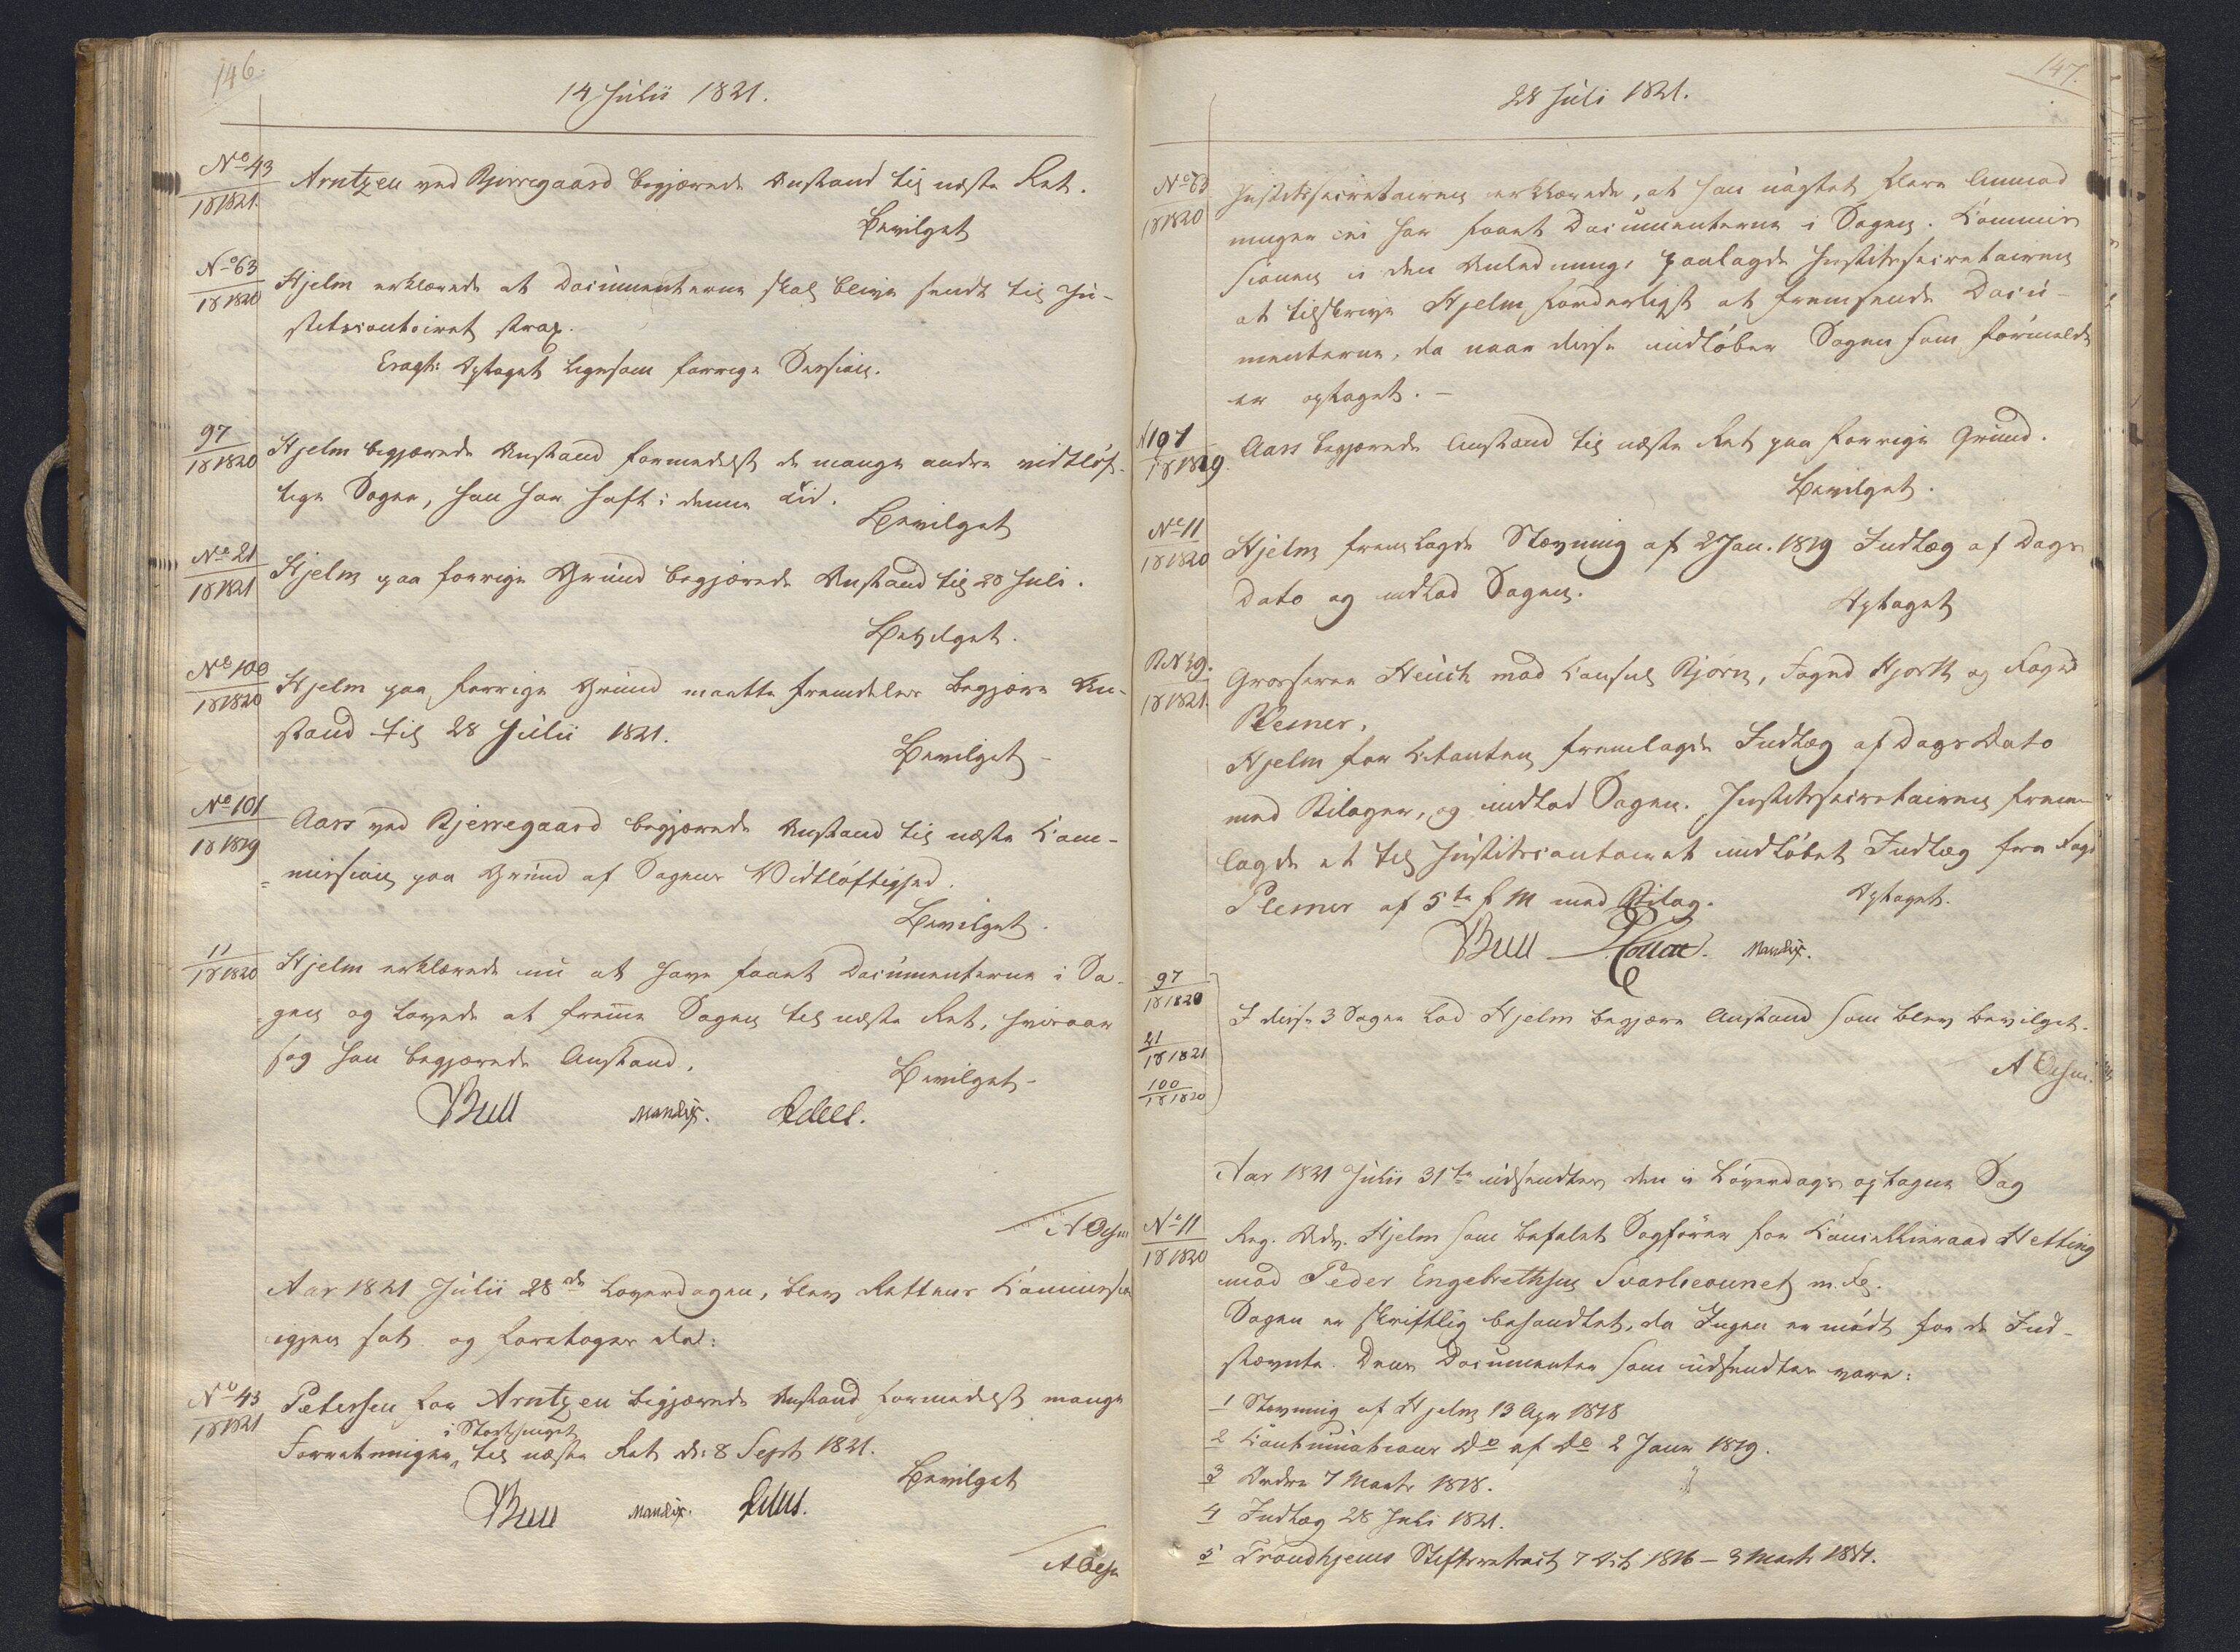 146.
14 Julii 1821.
No 43
18 1821
Arntzen ved Bjerregaard begjærede Anstand til næste Ret.
Bevilget
No 63
18 1820
Hjelm erklærede at Documenterne skal blive sendt til Ju-
stitscontoiret strax.
Eragt: Optaget ligesom forrige Session.
97
18 1820
Hjelm begjærede Anstand formedelst de mange andre vidtløf-
tige Sager, han har haft i denne Tid.
Bevilget
No 21
18 1821
Hjelm paa forrige Grund begjærede Anstand til 28 Juli.
Bevilget.
No 100
18 1820
Hjelm paa forrige Grund maatte fremdeles begjære An-
stand til 28 Julii 1821.
Bevilget
No 101
18 1819
Aars ved Bjerregaard begjærede Anstand til næste Com-
mission paa Grund af Sagens Vidtløftighed.
Bevilget.
11
18 1820
Hjelm erklærede nu at have faaet Documenterne i Sa-
gen og lovede at fremme Sagen til næste Ret, hvorom
han begjærede Anstand.
Bevilget
Bull Mandix.
Aar 1821 Julii 28de Løverdagen, blev Rettens Commission
igjen sat og foretoges da:
No 43
18 1821
Petersen for Arntzen begjærede Anstand formedelst mange
i Storthinget
Forretninger til næste Ret d: 8 Sept 1821.
Bevilget
Bull Mandix.
147.
28 Juli 1821.
No 63
18 1820
Justitssecretairen erklærede, at han uagtet flere Anmod
ninger ei har faaet Documenterne i Sagen. Commis
sionen i den Anledning paalagde Justitssecretairen
at tilskrive Hjelm forderligst at fremsende Docu-
menterne, da naar disse indløber Sagen som formeldt
er optaget.
N 101
18 1819.
Aars begjærede Anstand til næste Ret paa forrige Grund.
Bevilget.
No 11
18 1820
Hjelm fremlagde Stævning af 2 Jan. 1819 Indlæg af Dags
Dato og indlod Sagen.
Optaget
N 39.
18 1821.
Grosserer Heuch mod Consul Bjørn, Foged Hjorth og Foged
Plesner.
Hjelm for Citanten fremlagde Indlæg af Dags Dato
med Bilager, og indlod Sagen. Justitssecretairen frem-
lagde et til Justitscontoiret indløbet Indlæg fra Fogd
Plesner af 5te f M med Bilag.
Optaget.
Bull Mandix.
97
18 1820
21
18 1821
100
18 1820
I disse 3 Sager lod Hjelm begjære Anstand som blev bevilget.
Aar 1821 Julii 31te udsendtes den i Løverdags optagne Sag
No 11
18 1820
Reg. Adv. Hjelm som befalet Sagfører for Cancelliraad Hetting
mod Peder Engebrethsen m. Fl.
Sagen er skriftlig behandlet, da Ingen er mødt for de Ind-
stævnte. Dens Documenter som udsendtes vare:
1 Stevning af Hjelm 13 Apr 1818
2 Continuations Do af Do 2 Janr 1819.
3 Ordre 7 Marts 1818.
4 Indlæg 28 Juli 1821.
5 Trondhjems 7 1816 – 3 Marts